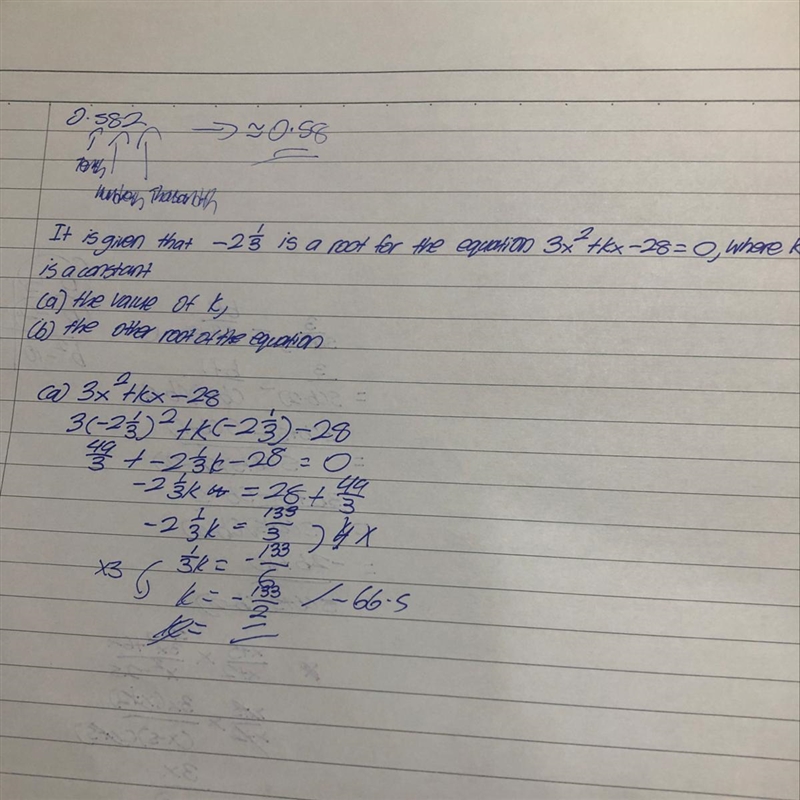 0.582 → ≈0.58
It is given that -2 1/3 is a root for the equation 3x²+kx-28=0, where k
is a constant
(a) the value of k,
(b) the other root of the equation
(a) 3x²+kx-28
3(-2 1/3)²+k(-2 1/3)-28
49/3 + -2 1/3k-28 = 0
-2 1/3k = 28+49/3
-2 1/3k = 133/3
x3 1/3k = -133/6
k = -133/2 / -66.5
k=